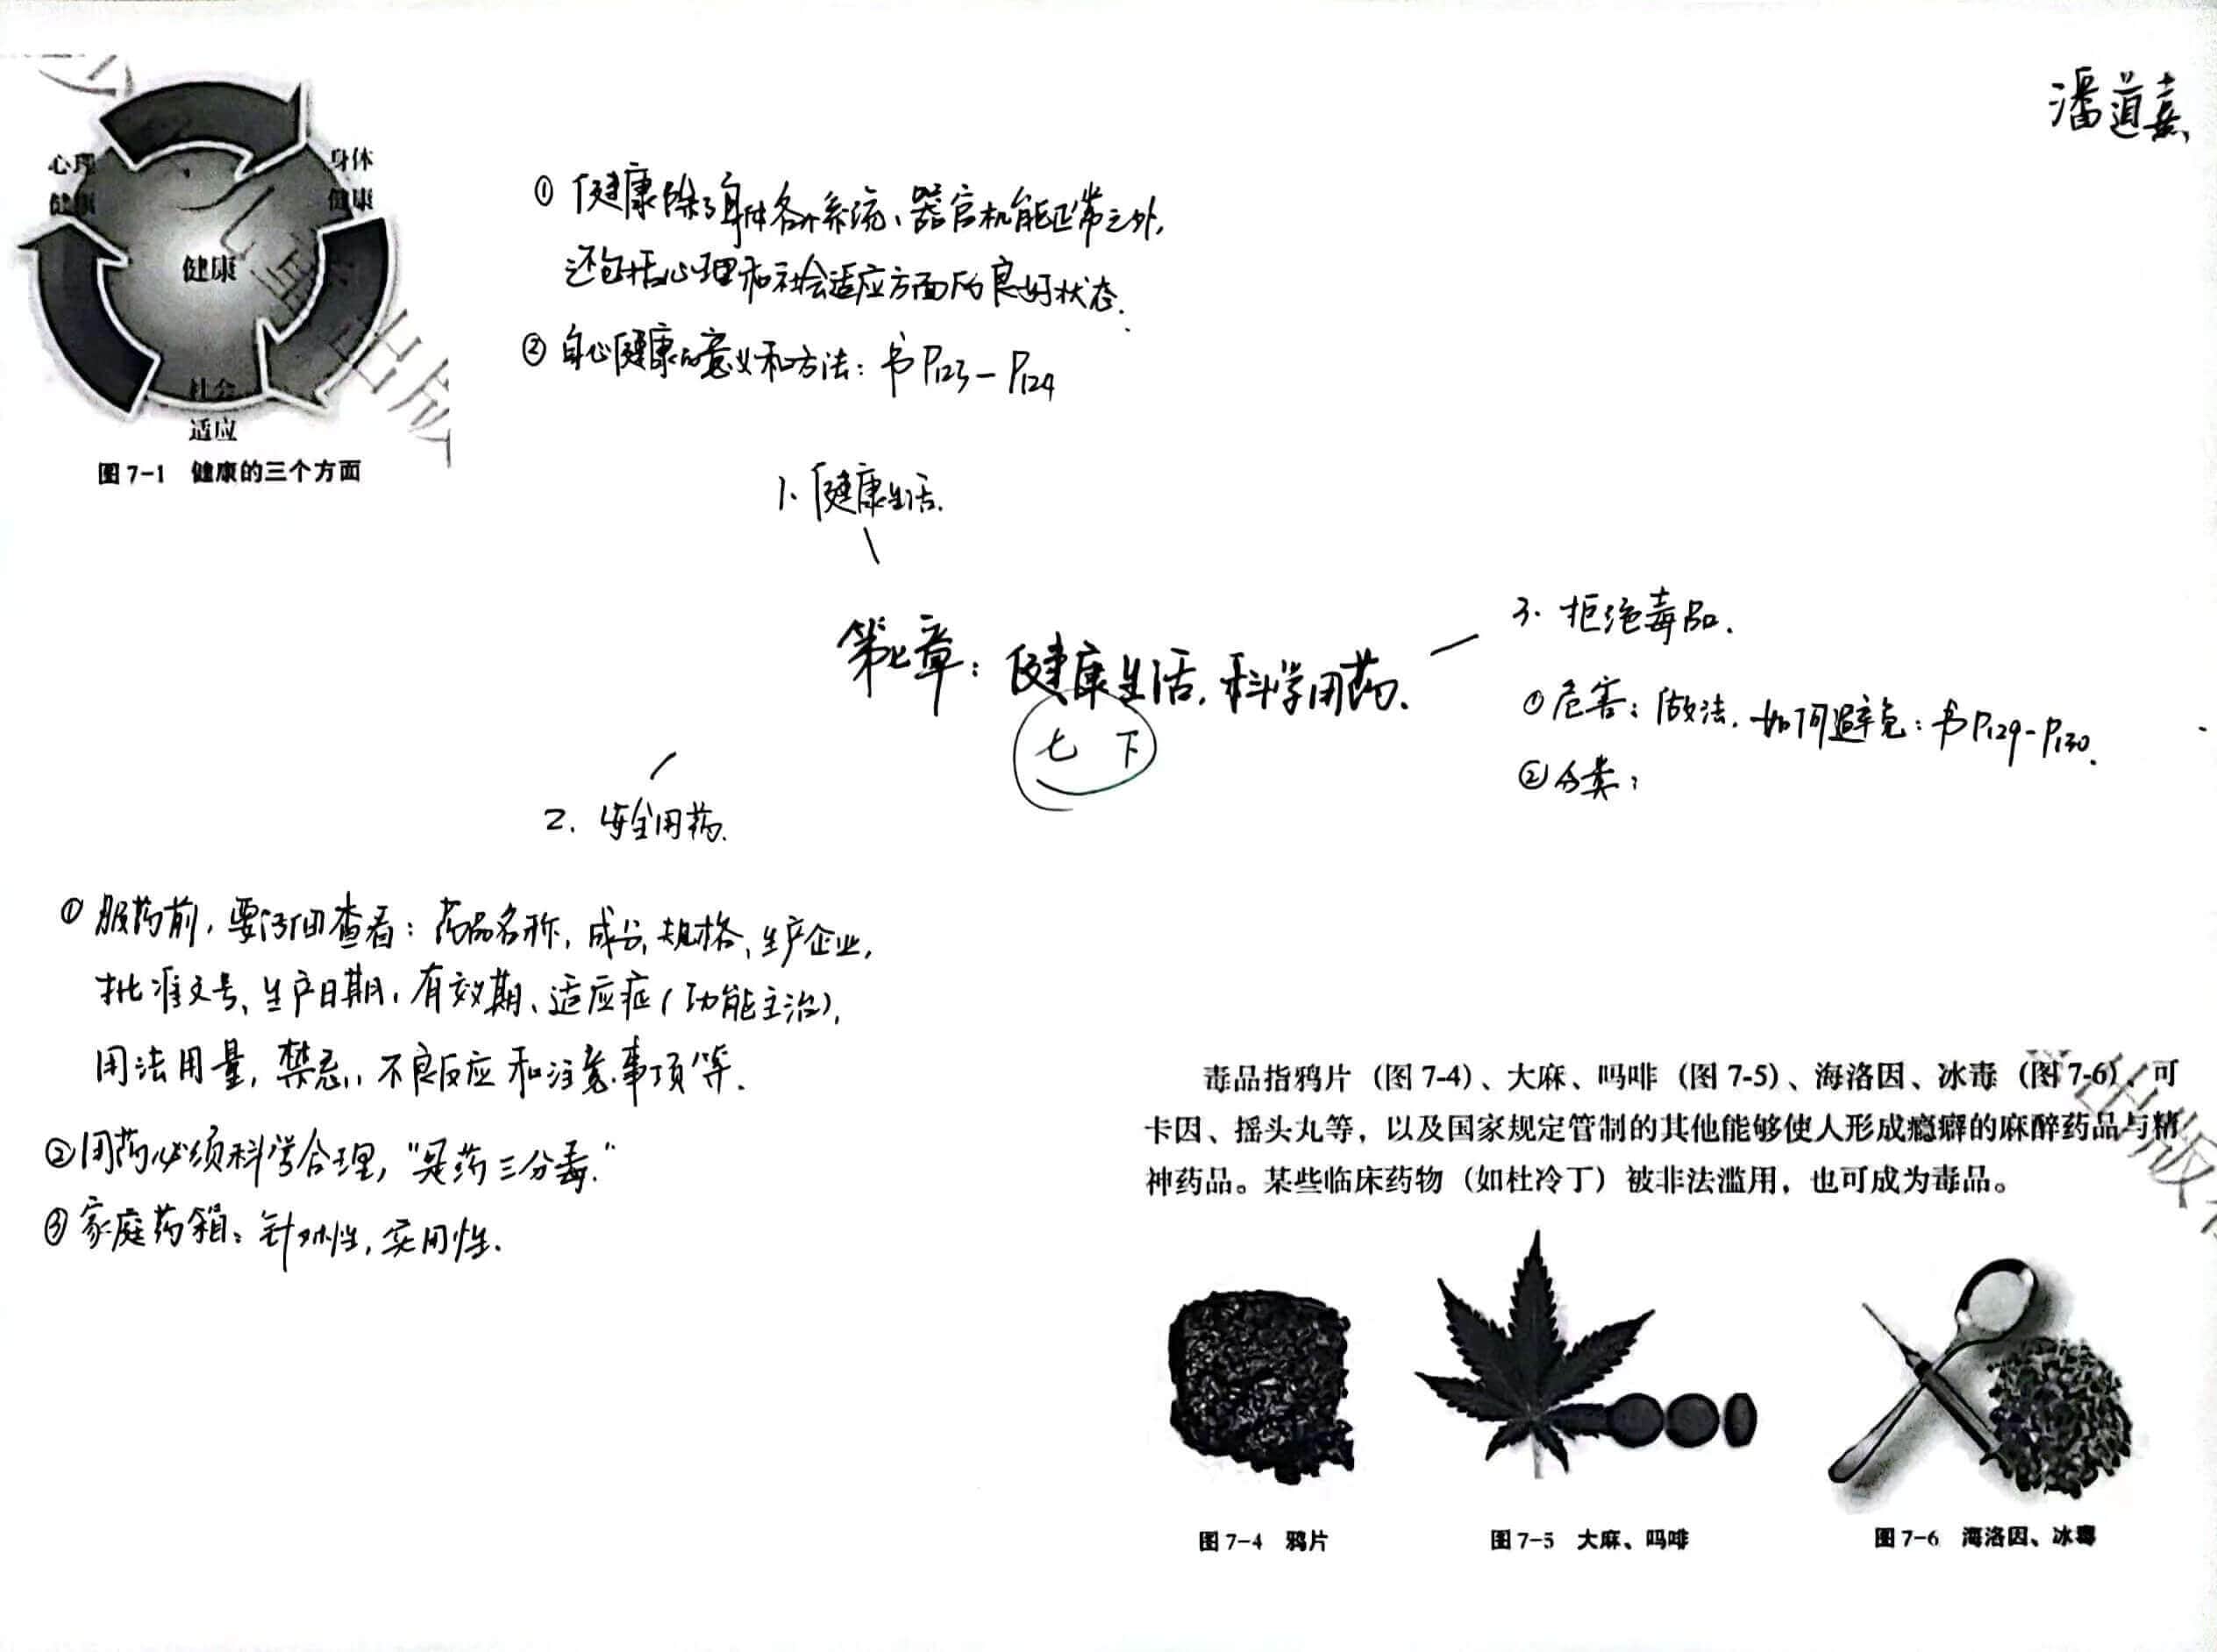 潘道熹
心理
健康
身体
健康
健康
社会
适应
图7-1 健康的三个方面
① 健康除了身体各个系统、器官机能正常之外,
还包括心理和社会适应方面的良好状态.
② 身心健康的意义和方法: 书P123-P124
1. 健康生活.
第七章: 健康生活, 科学用药.
七 下
3. 拒绝毒品.
① 危害: 做法, 如何避免: 书P129-P130.
② 分类:
2. 安全用药.
① 服药前, 要仔细查看: 药品名称, 成分, 规格, 生产企业,
批准文号, 生产日期, 有效期、适应症(功能主治),
用法用量, 禁忌, 不良反应和注意事项等.
② 用药必须科学合理, “是药三分毒.”
③ 家庭药箱: 针对性, 实用性.
毒品指鸦片（图 7-4）、大麻、吗啡（图 7-5）、海洛因、冰毒（图 7-6）、可
卡因、摇头丸等，以及国家规定管制的其他能够使人形成瘾癖的麻醉药品与精
神药品。某些临床药物（如杜冷丁）被非法滥用，也可成为毒品。
图7-4 鸦片
图7-5 大麻、吗啡
图7-6 海洛因、冰毒
出版
出版